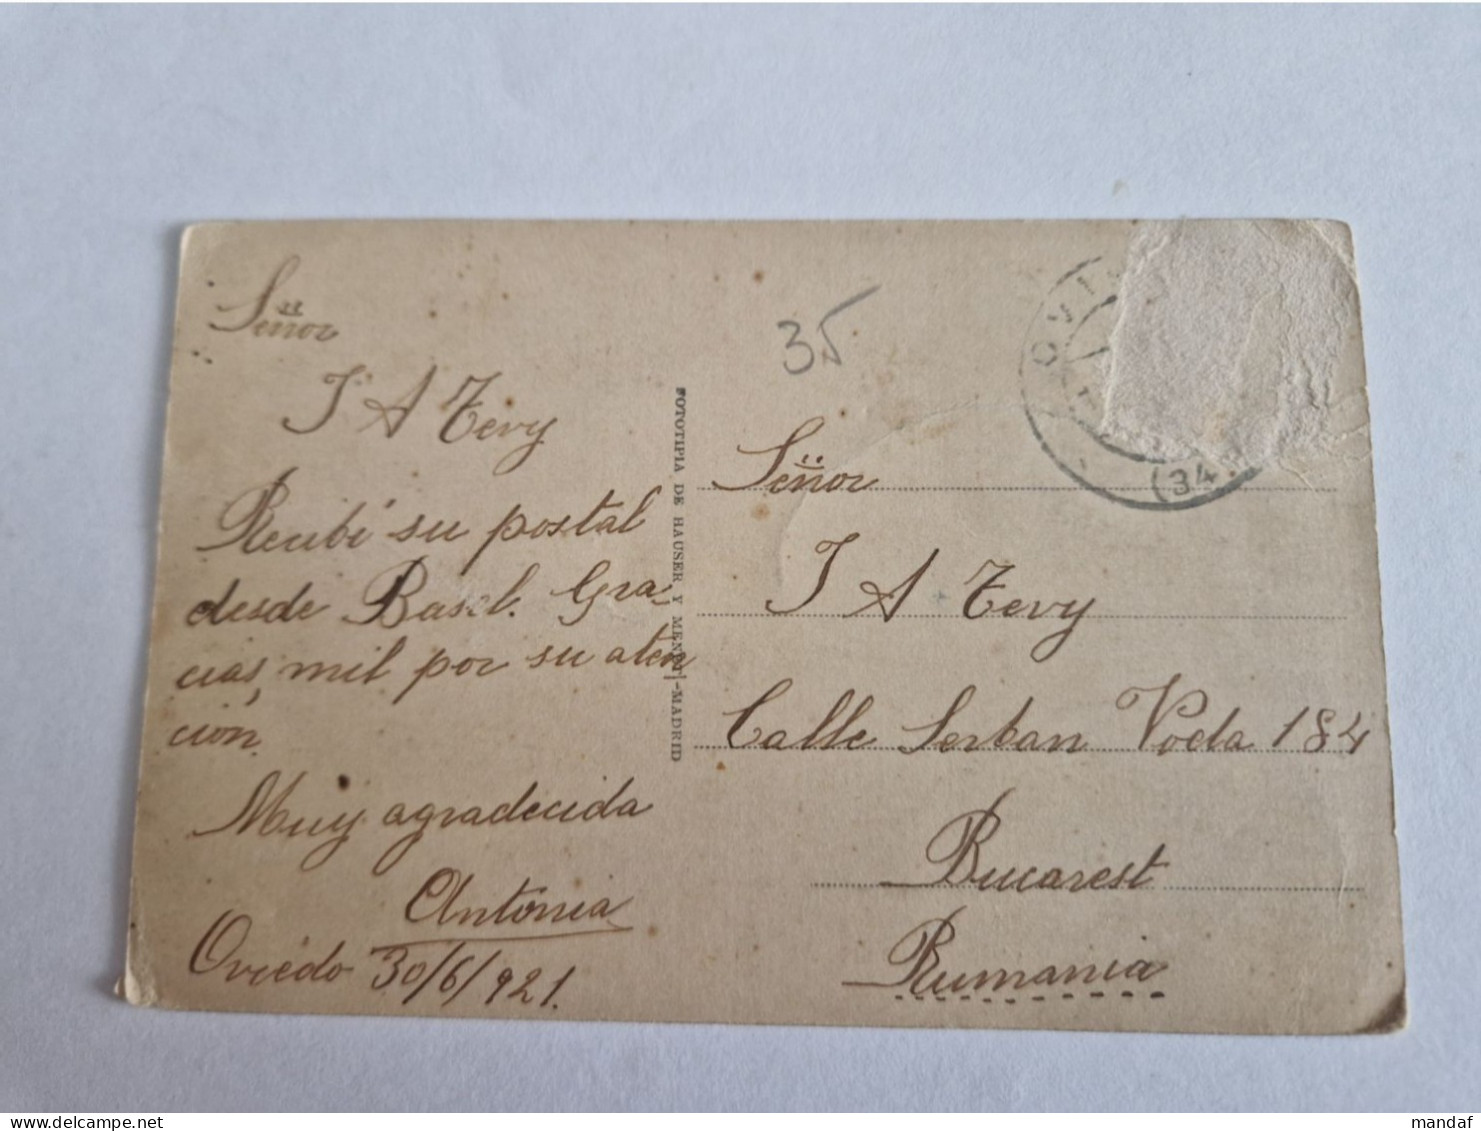 Señor
J A Tevy
Recibí su postal
desde Basel. Gra-
cias, mil por su aten
ción.
Muy agradecida
Antonia
Oviedo 30/6/921.
FOTOTIPIA DE HAUSER Y MENET.-MADRID
35
OVI
(34
Señor
J A Tevy
Calle Serban Voda 184
Bucarest
Rumania
mandaf